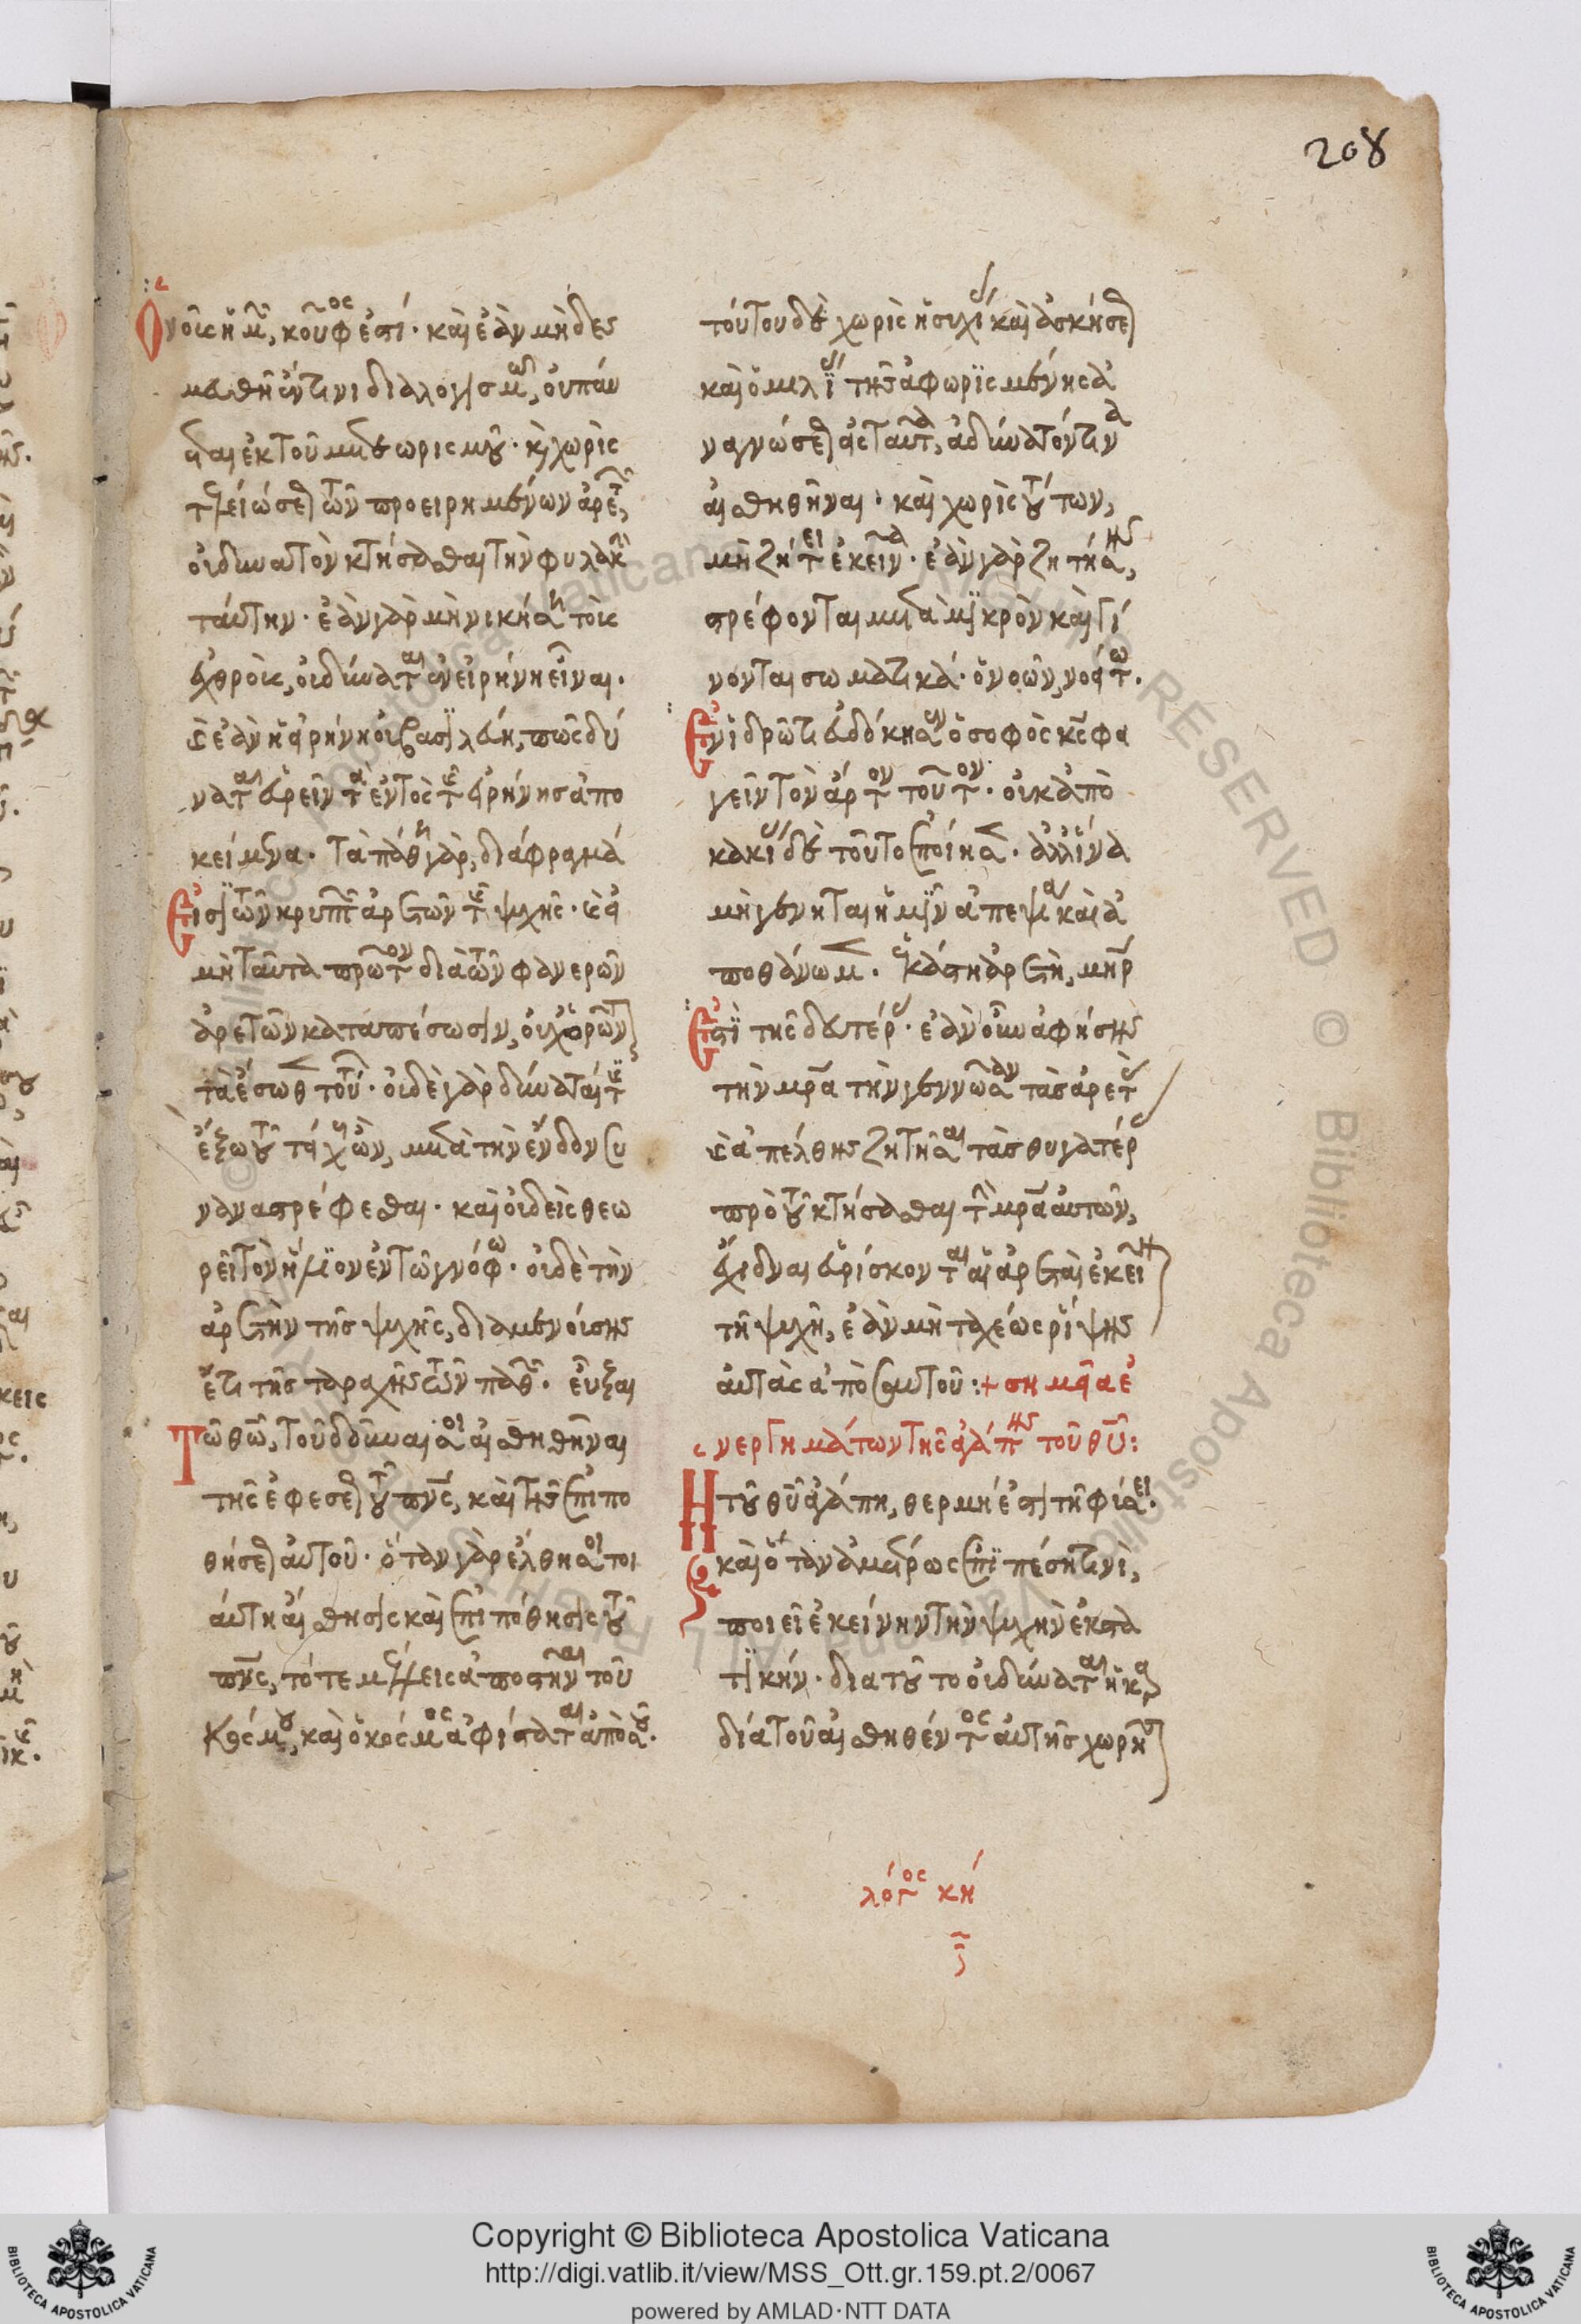 208
Ὁ νοῦς ἡμῶν, κοῦφός ἐστι· καὶ ἐὰν μὴ δεσ
μευθῇ ἔν τινι διαλογισμῷ, οὐ παύ
εται ἐκ τοῦ μετεωρισμοῦ· καὶ χωρὶς
τελειώσεως τῶν προειρημένων ἀρετῶν,
οὐ δυνατὸν κτήσασθαι τὴν φυλακὴν
ταύτην· ἐὰν γὰρ μὴ νικήσῃ τις τοὺς
ἐχθρούς, οὐ δύναται ἐν εἰρήνῃ εἶναι·
καὶ ἐὰν ἡ εἰρήνη οὐ βασιλεύῃ, πῶς δύ
ναται εὑρεῖν τὰ ἐντὸς τῆς εἰρήνης ἀπο
κείμενα· τὰ πάθη γὰρ, διάφραγμά
εἰσι τῶν κρυπτῶν ἀρετῶν τῆς ψυχῆς· καὶ εἰ
μὴ ταῦτα πρῶτον διὰ τῶν φανερῶν
ἀρετῶν καταπέσωσιν, οὐχ ὁρῶνται
τὰ ἔσωθεν τούτων· οὐδὲ γὰρ δύναταί τις
ἔξω τοῦ τείχους ὢν, μετὰ τῶν ἔνδον συ
ναναστρέφεσθαι· καὶ οὐδεὶς θεω
ρεῖ τὸν ἥλιον ἐν τῷ γνόφῳ· οὐδὲ τὴν
ἀρετὴν τῆς ψυχῆς, διαμενούσης
ἔτι τῆς ταραχῆς τῶν παθῶν· εὖξαι
τῷ θεῷ, τοῦ δοῦναί σοι αἰσθηθῆναι
τῆς ἐφέσεως τοῦ πνεύματος, καὶ τῆς ἐπιπο
θήσεως αὐτοῦ· ὅταν γὰρ ἔλθῃ σοι τοι
αύτη αἴσθησις καὶ ἐπιπόθησις τοῦ
πνεύματος, τότε μέλλεις ἀποστῆναι τοῦ
κόσμου, καὶ ὁ κόσμος ἀφίσταται ἀπὸ σοῦ·
τούτου δὲ χωρὶς ἡσυχίας καὶ ἀσκήσεως
καὶ ὁμιλίας τῆς ἀφωρισμένης ἀ
ναγνώσεως εἰς ταῦτα, ἀδύνατόν τινα
αἰσθηθῆναι· καὶ χωρὶς τούτων,
μὴ ζήτει ἐκεῖνα· ἐὰν γὰρ ζητήσῃς,
στρέφονται μετὰ μικρὸν καὶ γί
νονται σωματικά· ὁ νοῶν, νοείτω·
Ἐν ἱδρῶτι εὐδόκησεν ὁ σοφὸς κύριος φα
γεῖν τὸν ἄρτον τοῦτον· οὐκ ἀπὸ
κακίας δὲ τοῦτο ἐποίησεν· ἀλλ' ἵνα
μὴ γένηται ἡμῖν ἀπεψία καὶ ἀ
ποθάνωμεν· ἑκάστη ἀρετὴ, μήτηρ
ἐστὶ τῆς δευτέρας· ἐὰν οὖν ἀφήσῃς
τὴν μητέρα τὴν γεννῶσαν τὰς ἀρετὰς
καὶ ἀπέλθῃς ζητῆσαι τὰς θυγατέρας
πρὸ τοῦ κτήσασθαι τὴν μητέρα αὐτῶν,
ἔχιδναι εὑρίσκονται αἱ ἀρεταὶ ἐκεῖναι
τῇ ψυχῇ, ἐὰν μὴ ταχέως ῥίψῃς
αὐτὰς ἀπὸ σεαυτοῦ :+ σημεῖα ἐ
νεργημάτων τῆς ἀγάπης τοῦ θεοῦ:
Ἡ τοῦ θεοῦ ἀγάπη, θερμή ἐστι τῇ φύσει·
καὶ ὅταν ἀμέτρως ἐπιπέσῃ τινὶ,
ποιεῖ ἐκείνην τὴν ψυχὴν ἐκστα
τικήν· διατοῦτο οὐ δύναται ἡ καρ
δία τοῦ αἰσθηθέντος αὐτῆς χωρῆσαι
λόγος κη
Copyright © Biblioteca Apostolica Vaticana
http://digi.vatlib.it/view/MSS_Ott.gr.159.pt.2/0067
powered by AMLAD·NTT DATA
BIBLIOTECA APOSTOLICA VATICANA
BIBLIOTECA APOSTOLICA VATICANA